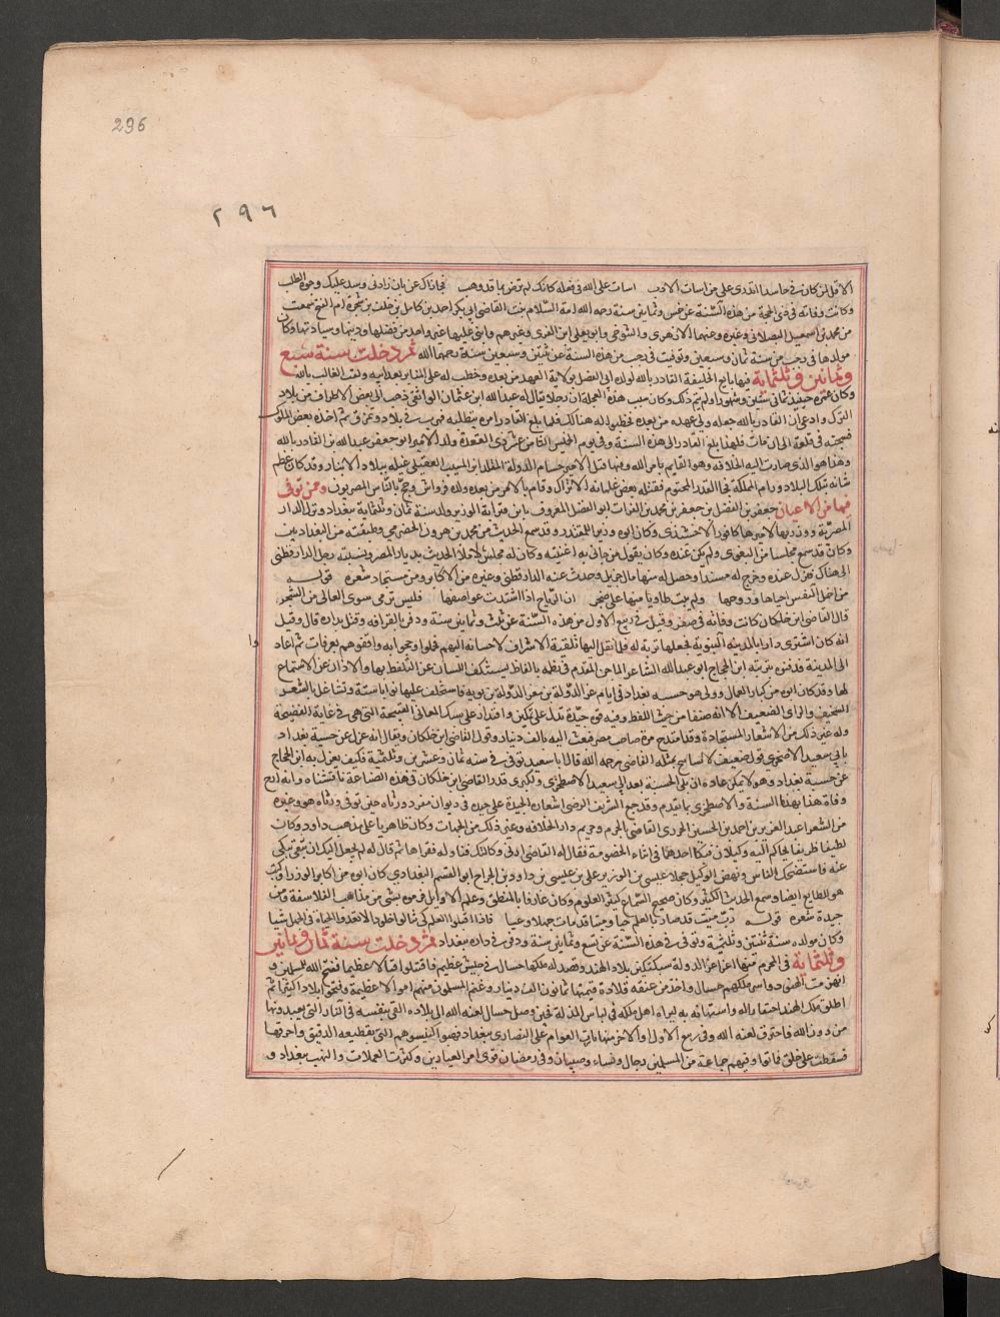 296
٢٩٦
الا قل لمن كان لي حاسدا اتدري على من اسات الادب اسات على الله في فعله كانك لم ترض بما قد وهب فجازاك عني بان زادني وسد عليك وجوه الطلب
وكانت وفاته في ذي الحجة من هذه السنة عن خمس وثمانين سنة رحمه الله امة السلام بنت القاضي ابي بكر احمد بن كامل بن خلف بن شجرة ام الفتح سمعت
من محمد بن اسمعيل البصلاني وغيره وعنها الازهري والتنوخي وابو يعلى ابن الفرى وغيرهم واثنى عليها غير واحد من فضلها ودينها وسيادتها وكان
مولدها في رجب من سنة ثمان وتسعين وتوفيت في رجب من هذه السنة عن ثنتين وتسعين سنة رحمها الله ثم دخلت سنة سبع
وثمانين وثلثماية فيها بايع الخليفة القادر بالله لولده ابي الفضل بولاية العهد من بعده وخطب له على المنابر بعد ابيه ولقب الغالب بالله
وكان عمره حينئذ ثماني سنين وشهورا ولم يتم ذلك وكان سبب هذه العجلة ان رجلا يقال له عبد الله ابن عثمان الواثقي ذهب الى بعض الاطراف من بلاد
الترك وادعى ان القادر بالله جعله ولي عهده من بعده فخطبوا له هنالك فلما بلغ القادر امره بعث يتطلبه فهرب في بلاد وتمزق ثم اخذه بعض الملوك
فسجنه في قلعة الى ان مات فلهذا بلغ القادر الى هذه السنة وفي يوم الخميس الثامن عشر ذي القعدة ولد الامير ابو جعفر عبد الله بن القادر بالله
وهذا هو الذي صارت اليه الخلافة وهو القايم بامر الله وفيها قتل الامير حسام الدولة المقلد ابن المسيب العقيلي غيلة ببلاد الانبار وقد كان عظم
شانه بتلك البلاد ورام المملكة فجاه القدر المحتوم فقتله بعض غلمانه الاتراك وقام بالامر من بعده ولده قرواش وحج بالناس المصريون وممن توفى
فيها من الاعيان جعفر بن الفضل بن جعفر بن محمد بن الفرات ابو الفضل المعروف بابن حنزابة الوزير ولد سنة ثمان وثلثماية ببغداد ونزل الديار
المصرية ووزر بها للامير ها كافور الاخشيدي وكان ابوه وزيرا للمقتدر وقد سمع الحديث من محمد بن هرون الحضرمي وطبقته من البغداديين
وكان قد سمع مجلسا من البغوي ولم يكن عنده وكان يقول من جاني به اغنيته وكان له مجلس لاملاء الحديث بديار المصر وبسببه رحل الدارقطني
الى هناك فنزل عنده وخرج له مسندا وحصل له منه مال جزيل وحدث عنه الدارقطني وغيره من الاكابر ومن مستجاد شعره قوله
من اخمل النفس احياها وروحها ولم يبت طاويا منها على ضجر ان الرياح اذا اشتدت عواصفها فليس ترمي سوى العالي من الشجر
قال القاضي ابن خلكان كانت وفاته في صفر وقيل في ربيع الاول من هذه السنة عن ثلث وثمانين سنة ودفن بالقرافة وقيل بداره قال وقيل
انه كان اشترى دارا بالمدينة النبوية فجعلها تربة له فلما نقل اليها تلقته الاشراف لاحسانه اليهم فحملوا وحجوا به واوقفوهم بعرفات ثم اعاد
الى المدينة فدفنوه بتربته ابن الحجاج ابو عبد الله الشاعر الماجن المقذع في نظمه بالفاظ يستنكف اللسان عن التلفظ بها والاذان عن الاستماع
لها وقد كان ابوه من كبار العمال وولى هو حسبة بغداد في ايام عز الدولة بن معز الدولة بن بويه فاستخلف عليها نوابا ستة وتشاغل بالشعر
السخيف والراي الضعيف الا انه صنفا من حيث اللفظ وفيه قوة جيدة تدل على تمكن واقتدار على سبك المعاني القبيحة التي هي في غاية الفضيحة
وله غير ذلك من الاشعار المستجادة وقد امتدح مرة صاحب مصر فبعث اليه بالف دينار وقول القاضي ابن خلكان ويقال انه عزل عن حسبة بغداد
بابي سعيد الاصطخري قول ضعيف لا يسامح بمثله القاضي رحمه الله فان ابا سعيد توفي في سنة ثمان وعشرين وثلثمئة فكيف يعزل به ابن الحجاج
عن حسبة بغداد وهو لا يمكن عادة ان يلي الحسبة بعد ابي سعيد الاصطخري
وفاة هذا بهذا السنة والاصطخري بما تقدم وقد جمع الشريف الرضي اشعاره الجيدة على حدة في ديوان مفرد ورثاه حين توفي ورثاه هو وغيره
من الشعرا عبد العزيز بن احمد بن الحسين الخرزي القاضي بالحرم وحريم دار الخلافة وغير ذلك من الجهات وكان ظاهريا على مذهب داود وكان
لطيفا ظريفا تحاكم اليه وكيلان فبكا احدهما في اثناء الخصومة فقال له القاضي ارني وكالتك فناوله فقراها ثم قال له لم يجعل اليك ان تبكي
عنه فاستضحك الناس ونهض الوكيل خجلا عيسى بن الوزير علي بن عيسى بن داود بن الجراح ابو القسم البغدادي كان ابوه من اكابر الوزراء وكتب
هو للطايع ايضا وسمع الحديث الكثير وكان صحيح السماع كثير العلوم وكان عارفا بالمنطق وعلم الاوايل فرموه بشئ من مذاهب الفلاسفة ومن
جيده شعره قوله رب ميت قد صار بالعلم حيا ومبقا قد مات جهلا وعيا فاقتنوا العلم كي تنالوا خلودا لا تعدوا الحياة في الجهل شيا
وكان مولده سنة ثنتين وثلثمئة وتوفي في هذه السنة عن تسع وثمانين سنة ودفن في داره ببغداد ثم دخلت سنة ثمان وثمانين
وثلثماية في المحرم منها غزا عز الدولة سبكتكين بلاد الهند وقصد له ملكها جيبال في جيش عظيم فاقتتلوا قتالا عظيما ففتح الله للمسلمين و
انهزمت الهنود واسر ملكهم جيبال واخذ من عنقه قلادة قيمتها ثمانون الف دينار وغنم المسلمون منهم اموالا عظيمة وفتحوا بلادا كثيرة ثم
اطلق ملك الهند احتقارا له واستهانة به ليراه اهل ملكه في لباس المذلة فحين وصل جيبال لعنه الله الى بلاده القى بنفسه في النار التي يعبدونها
من دون الله فاحترق لعنه الله وفي ربيع الاول او الاخر منها ثارت العوام على النصارى ببغداد فنهبوا كنيستهم التي بقطيعة الدقيق واحرقوها
فسقطت على خلق فماتوا وفيهم جماعة من المسلمين رجال ونساء وصبيان وفي رمضان قوى امر العيارين وكثرت العملات والنهب ببغداد و